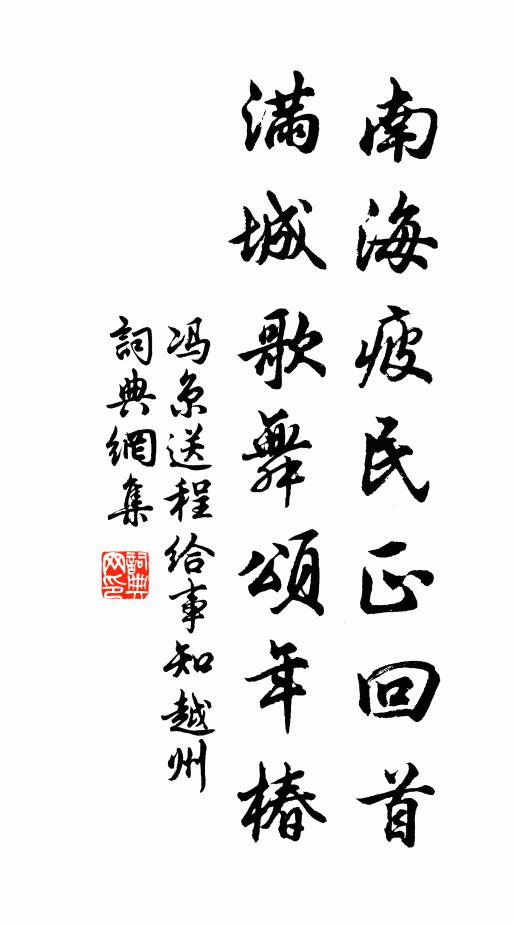 南海疲民正回首
满城歌舞頌年椿
冯京送程给事知越州
詞典網集
詞典网印